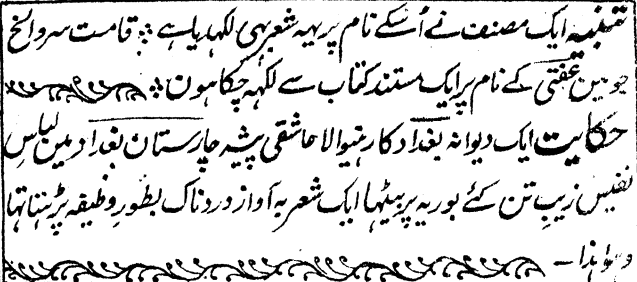 تنبیہ ایک مصنف نے اُسکے نام پر یہہ شعر بہی لکہدیا ہے ؞ قامت سرو الخ
جو مین عفتی کے نام پر ایک مستند کتاب سے لکہہ چکا ہون ؞
حکایت ایک دیوانہ بغداد کا رہنیوالا عاشقی پیشہ چارستان بغداد مین لباس
نفیس زیب تن کئے بوریہ پر بیٹہا ایک شعر بہ آواز دردناک بطور وظیفہ پڑہتا تہا
وہو ہذا ۔